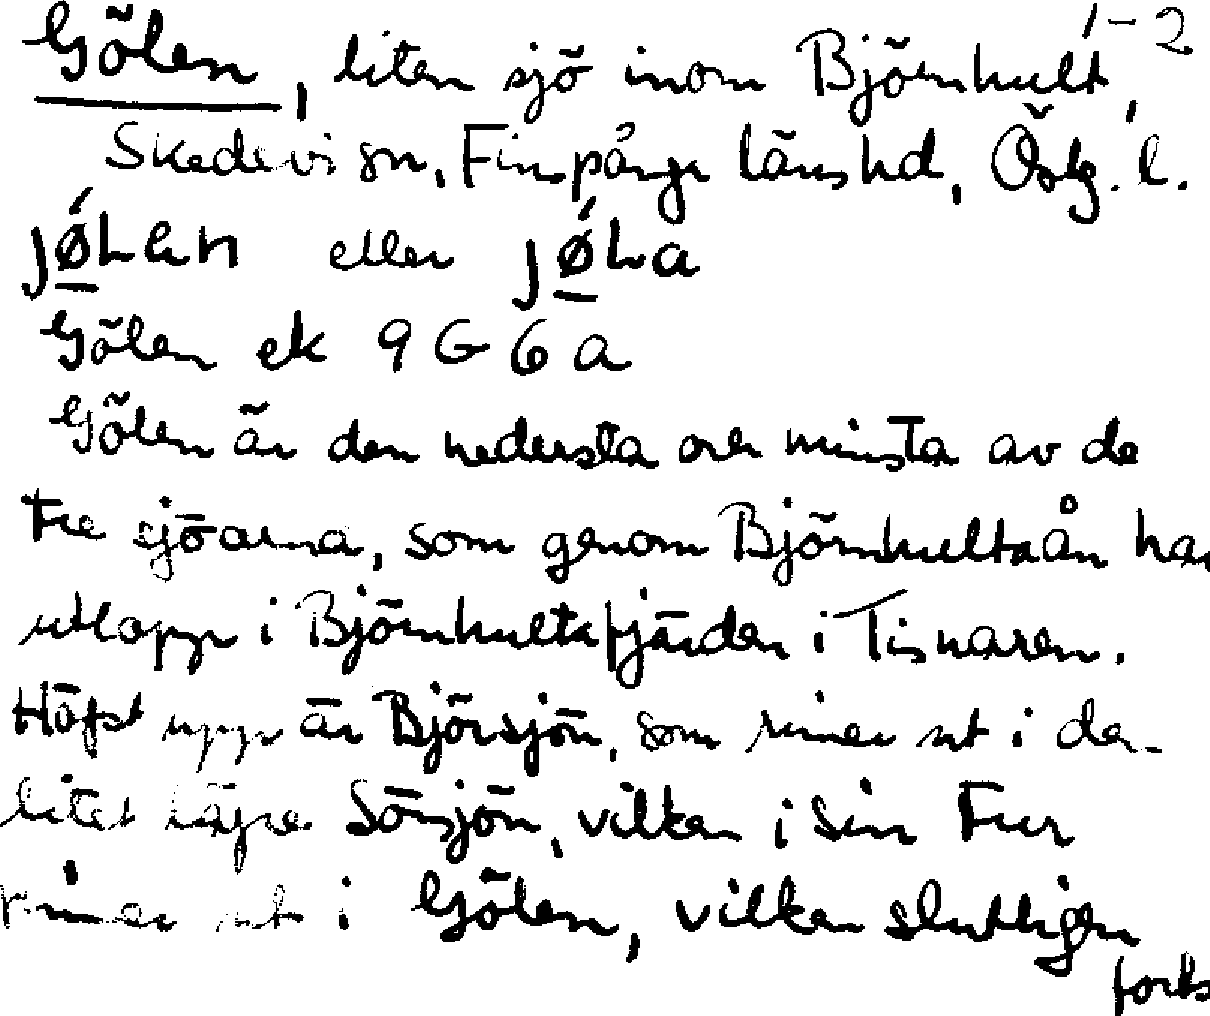 1-2
Gölen, liten sjö inom Björnhult,
Skedevi sn, Finspånga länshd, Östg. l.
jǿLan eller jǿLa
Gölen ek 9 G 6 a
Gölen är den nedersta och minsta av de
tre sjöarna, som genom Björnhultaån har
utlopp i Björnhultafjärden i Tisnaren.
Högst upp är Björsjön, som rinner ut i den
litet lägre Sörsjön, vilken i sin tur
rinner ut i Gölen, vilken slutligen
forts